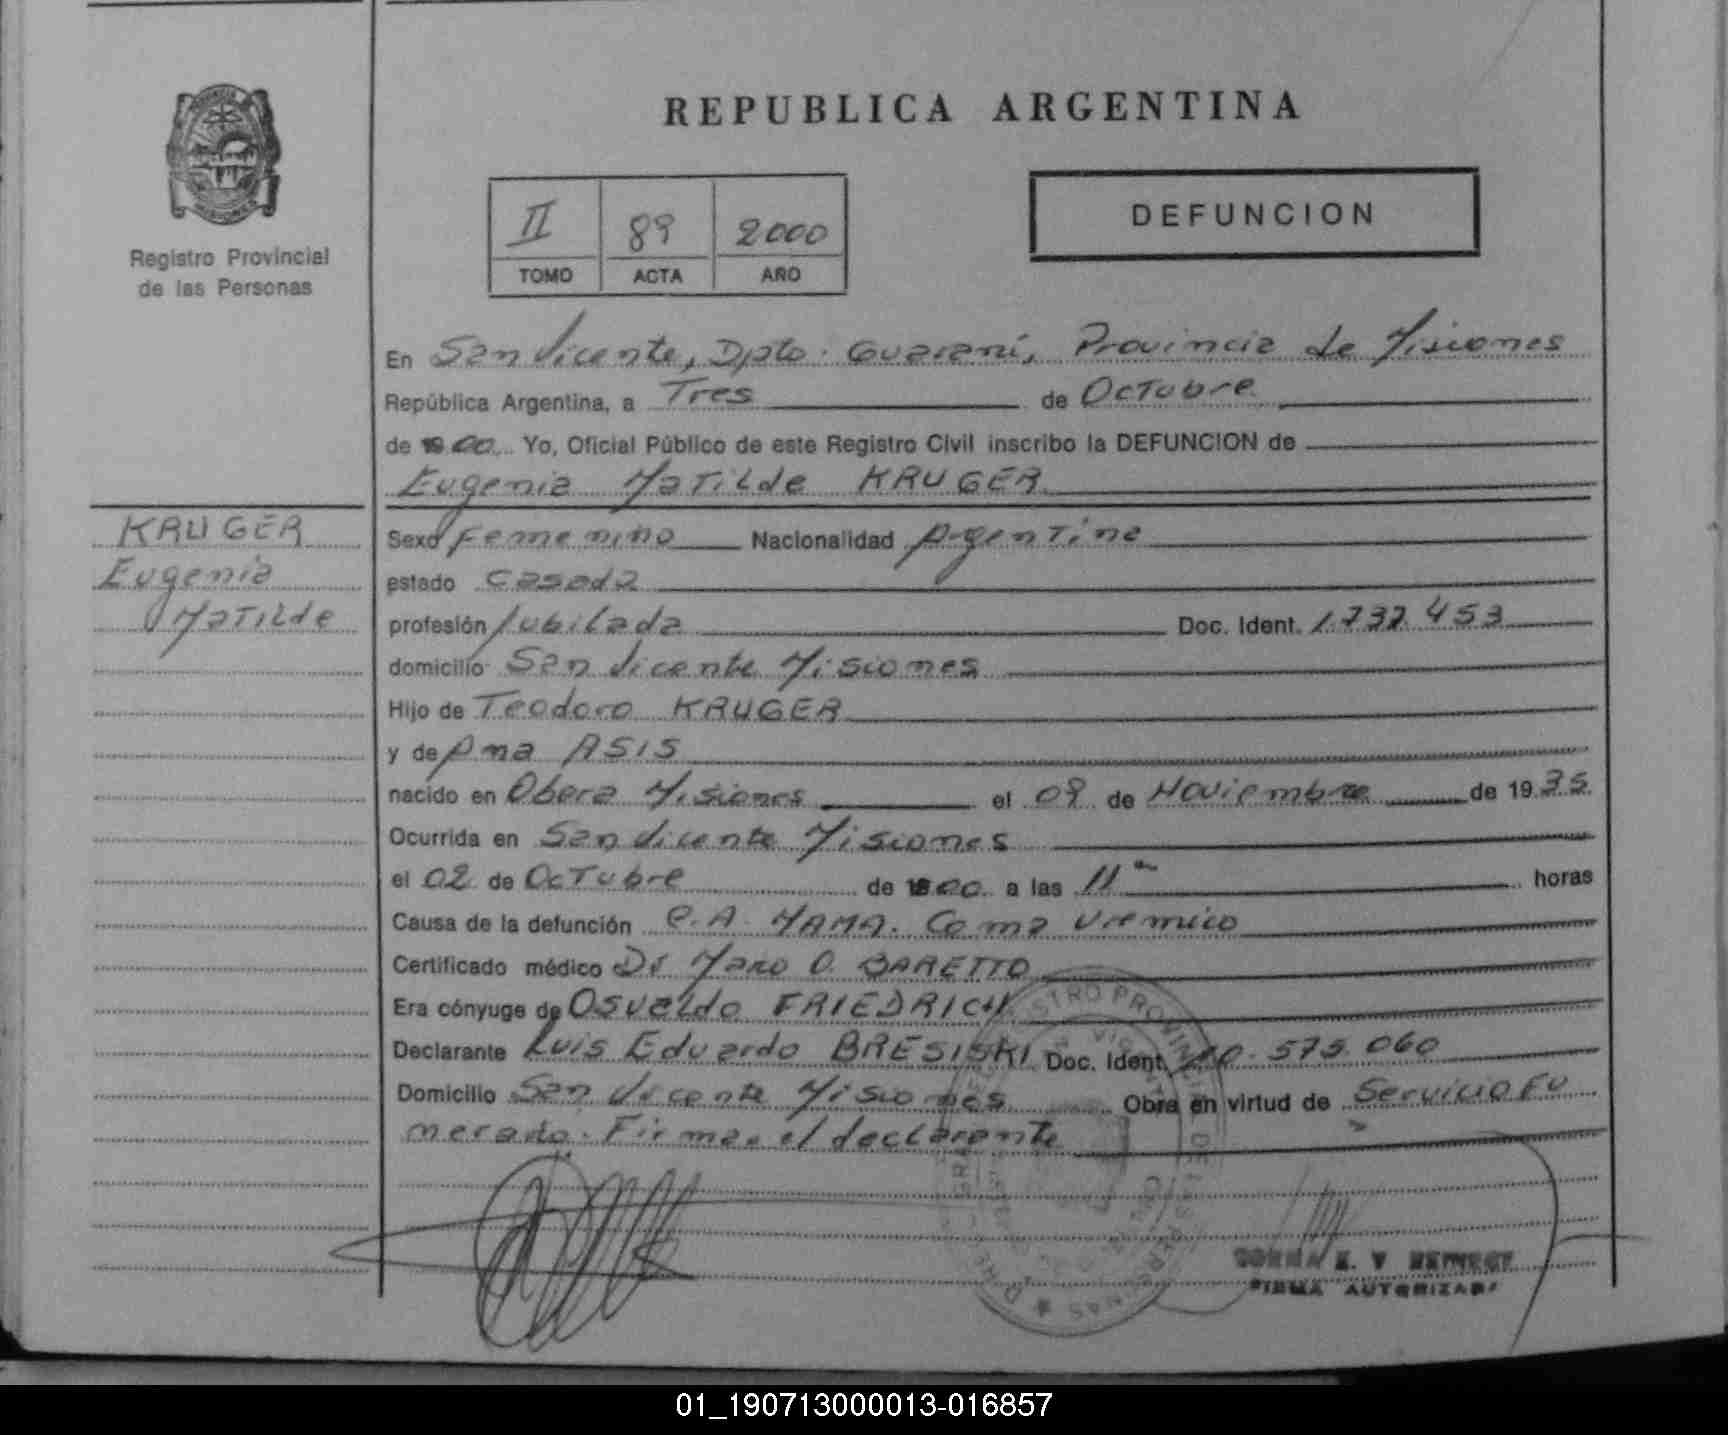 REPUBLICA ARGENTINA
Registro Provincial
de las Personas
II 89 2000
TOMO ACTA AÑO
DEFUNCION
En San Vicente, Dpto. Guarani, Provincia de Misiones
República Argentina, a Tres de Octubre
de 00 Yo, Oficial Público de este Registro Civil inscribo la DEFUNCION de
Eugenia Matilde KRUGER
KRUGER
Eugenia
Matilde
Sexo femenino Nacionalidad Argentina
estado casada
profesión Jubilada Doc. Ident. 1.737.453
domicilio San Vicente Misiones
Hijo de Teodoro KRUGER
y de Ana ASIS
nacido en Obera Misiones el 09 de Noviembre de 1935
Ocurrida en San Vicente Misiones
el 02 de Octubre de 00 a las 11 horas
Causa de la defunción C.A. MAMA. Coma Uremico
Certificado médico Dr O. BARETTO
Era cónyuge de Osvaldo FRIEDRICH
Declarante Luis Eduardo BRESISKI Doc. Ident. 20.575.060
Domicilio San Vicente Misiones Obra en virtud de Servicio Fu
nerario. Firma el declarante
FIRMA AUTORIZADA
01_190713000013-016857